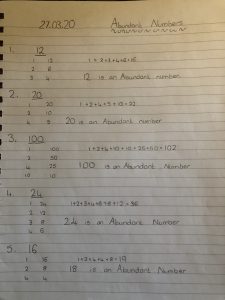 27.03.20 Abundant Numbers
1. 12
1 12 1+2+3+4+6=16
2 6
3 4 12 is an Abundant number.
2. 20
1 20 1+2+4+5+10=22
2 10
4 5 20 is an Abundant number
3. 100
1 100
2 50
4 25 100 is an Abundant Number
10 10
4. 24
1 24 1+2+3+4+6+8+12=36
2 12
3 8 24 is an Abundant Number
4 6
5. 16
1 16
2 8 18 is an Abundant Number
4 4